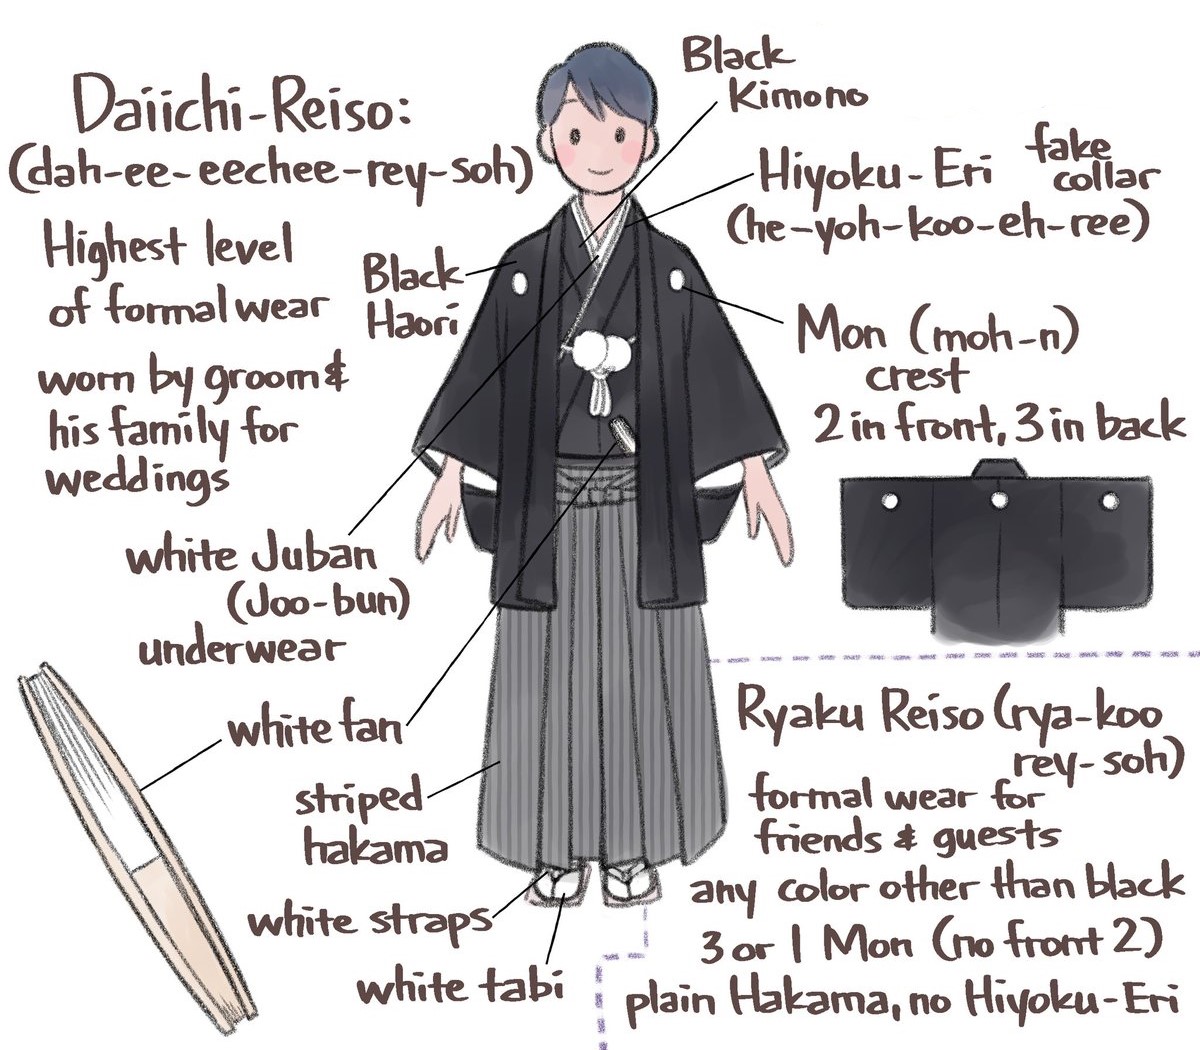 Daiichi-Reiso:
(dah-ee-eechee-rey-soh)
Highest level
of formal wear
worn by groom &
his family for
weddings
Black
Kimono
Hiyoku-Eri fake
collar
(he-yoh-koo-eh-ree)
Black
Haori
Mon (moh-n)
crest
2 in front, 3 in back
white Juban
(Joo-bun)
underwear
white fan
striped
hakama
white straps
white tabi
Ryaku Reiso (rya-koo
rey-soh)
formal wear for
friends & guests
any color other than black
3 or 1 Mon (no front 2)
plain Hakama, no Hiyoku-Eri